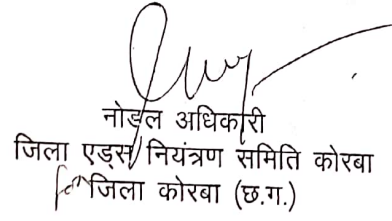 नोडल अधिकारी
जिला एड्स नियंत्रण समिति कोरबा
for जिला कोरबा (छ.ग.)